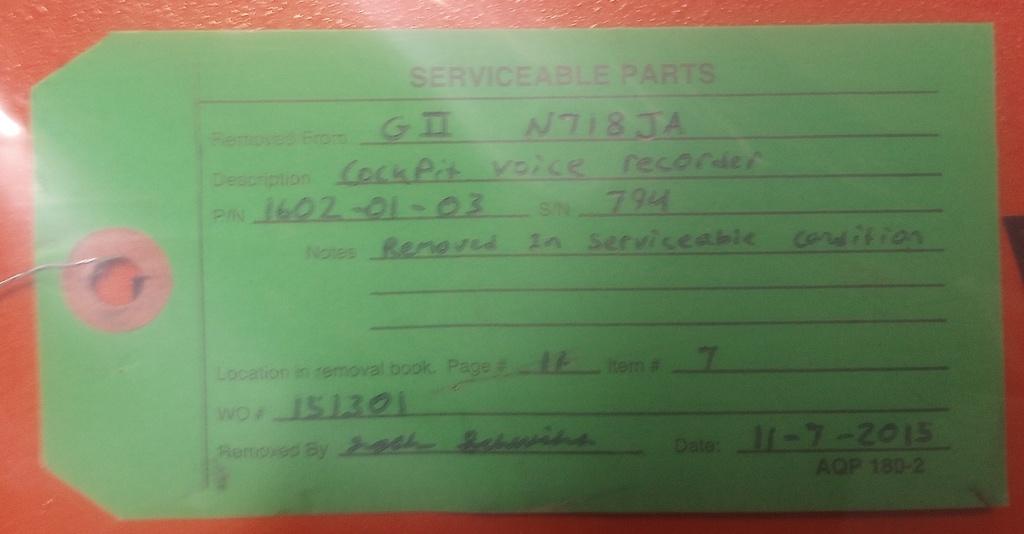 SERVICEABLE PARTS
Removed From G II N718JA
Description Cockpit voice recorder
P/N 1602-01-03 S/N 794
Notes Removed In serviceable condition
Location in removal book. Page # Item # 7
WO # 151301
Removed By Date: 11-7-2015
AQP 180-2